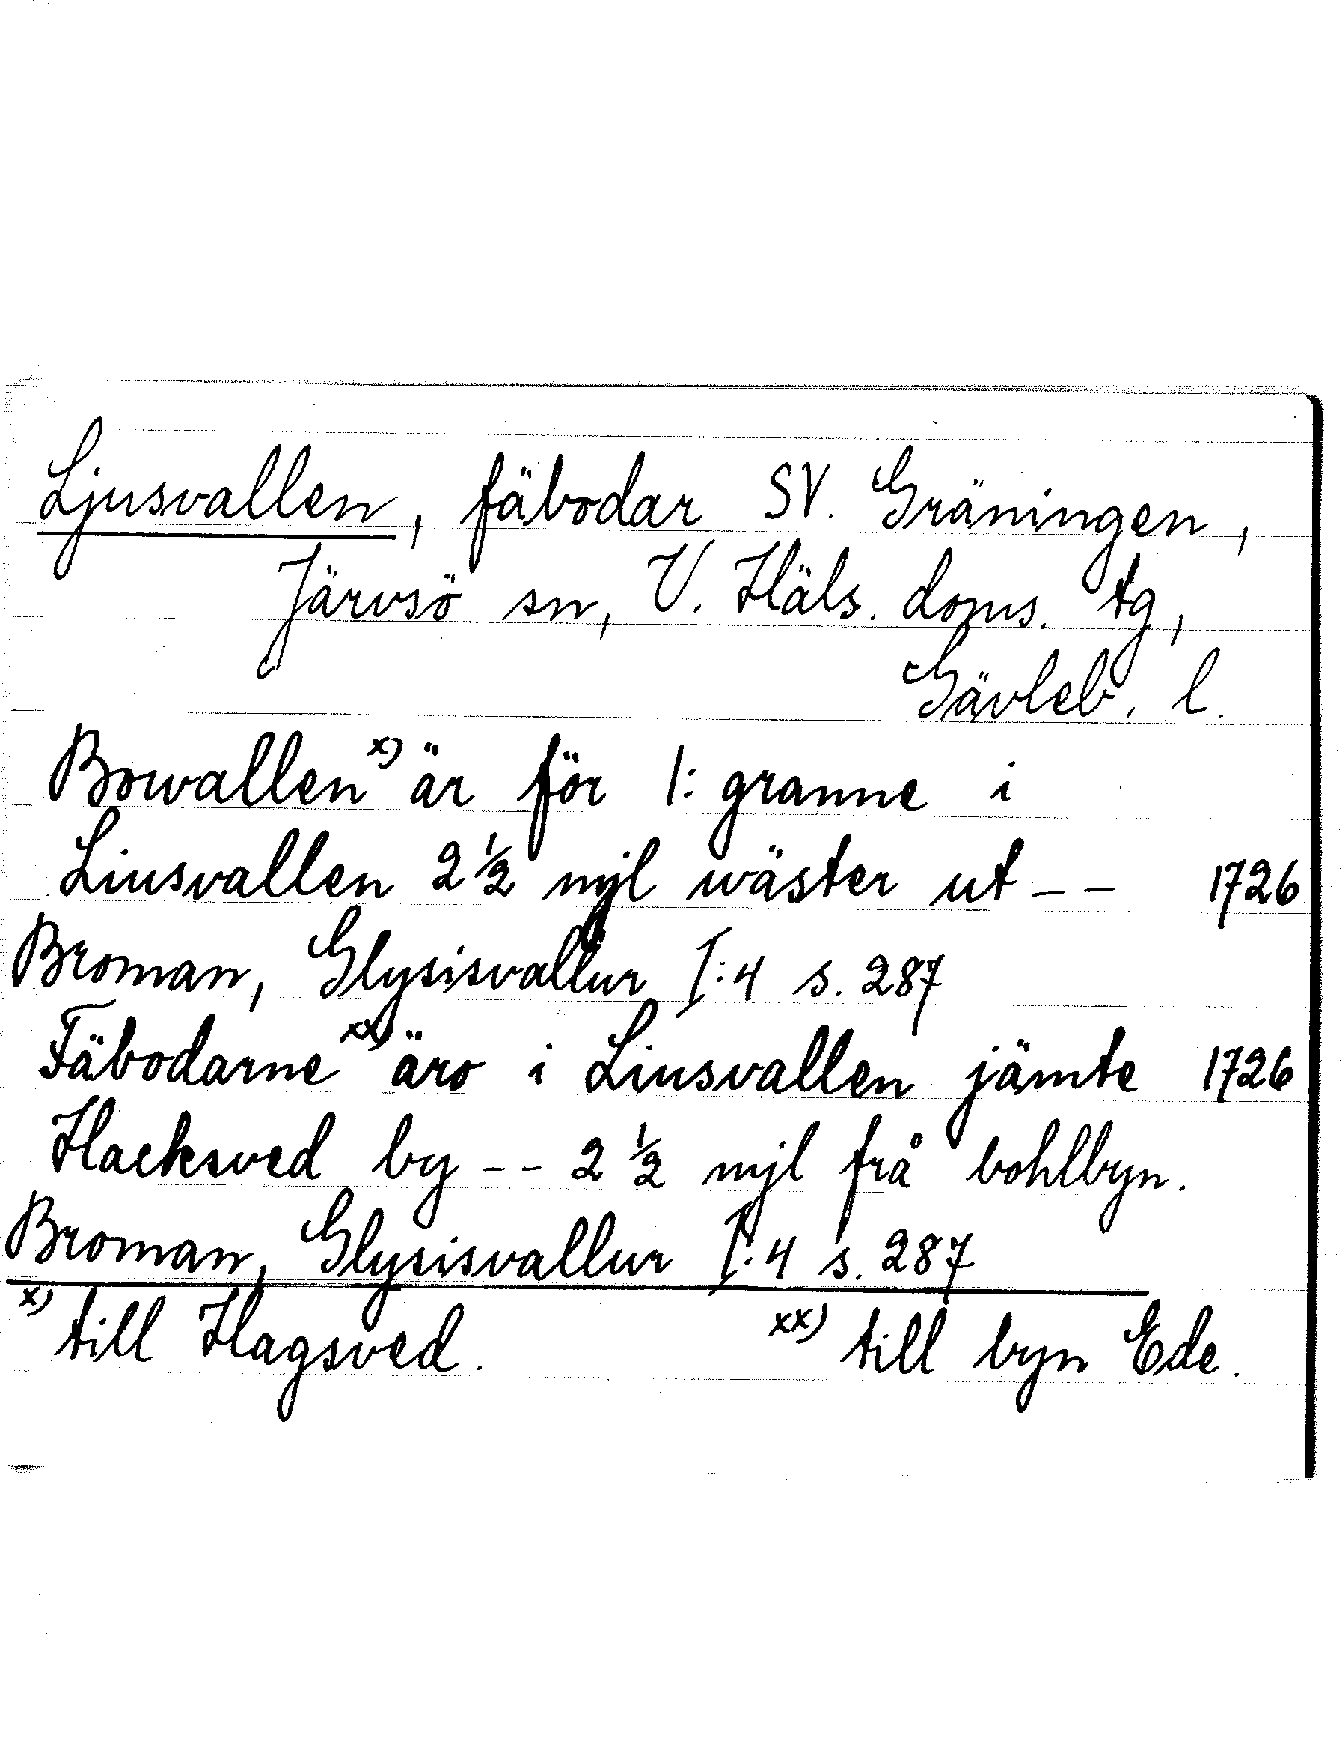 Ljusvallen, fäbodar SV. Gräningen,
Järvsö sn, V. Häls. doms. tg,
Gävleb. l.
Bowallen x) är för 1: granne i
Liusvallen 2 1/2 mjl wäster ut -- 1726
Broman, Glysisvallur I:4 s. 287
Fäbodarne xx) äro i Liusvallen jämte 1726
Hacksved by -- 2 1/2 mjl frå bohlbyn.
Broman, Glysisvallur I:4 s. 287
x) till Hagsved. xx) till byn Ede.